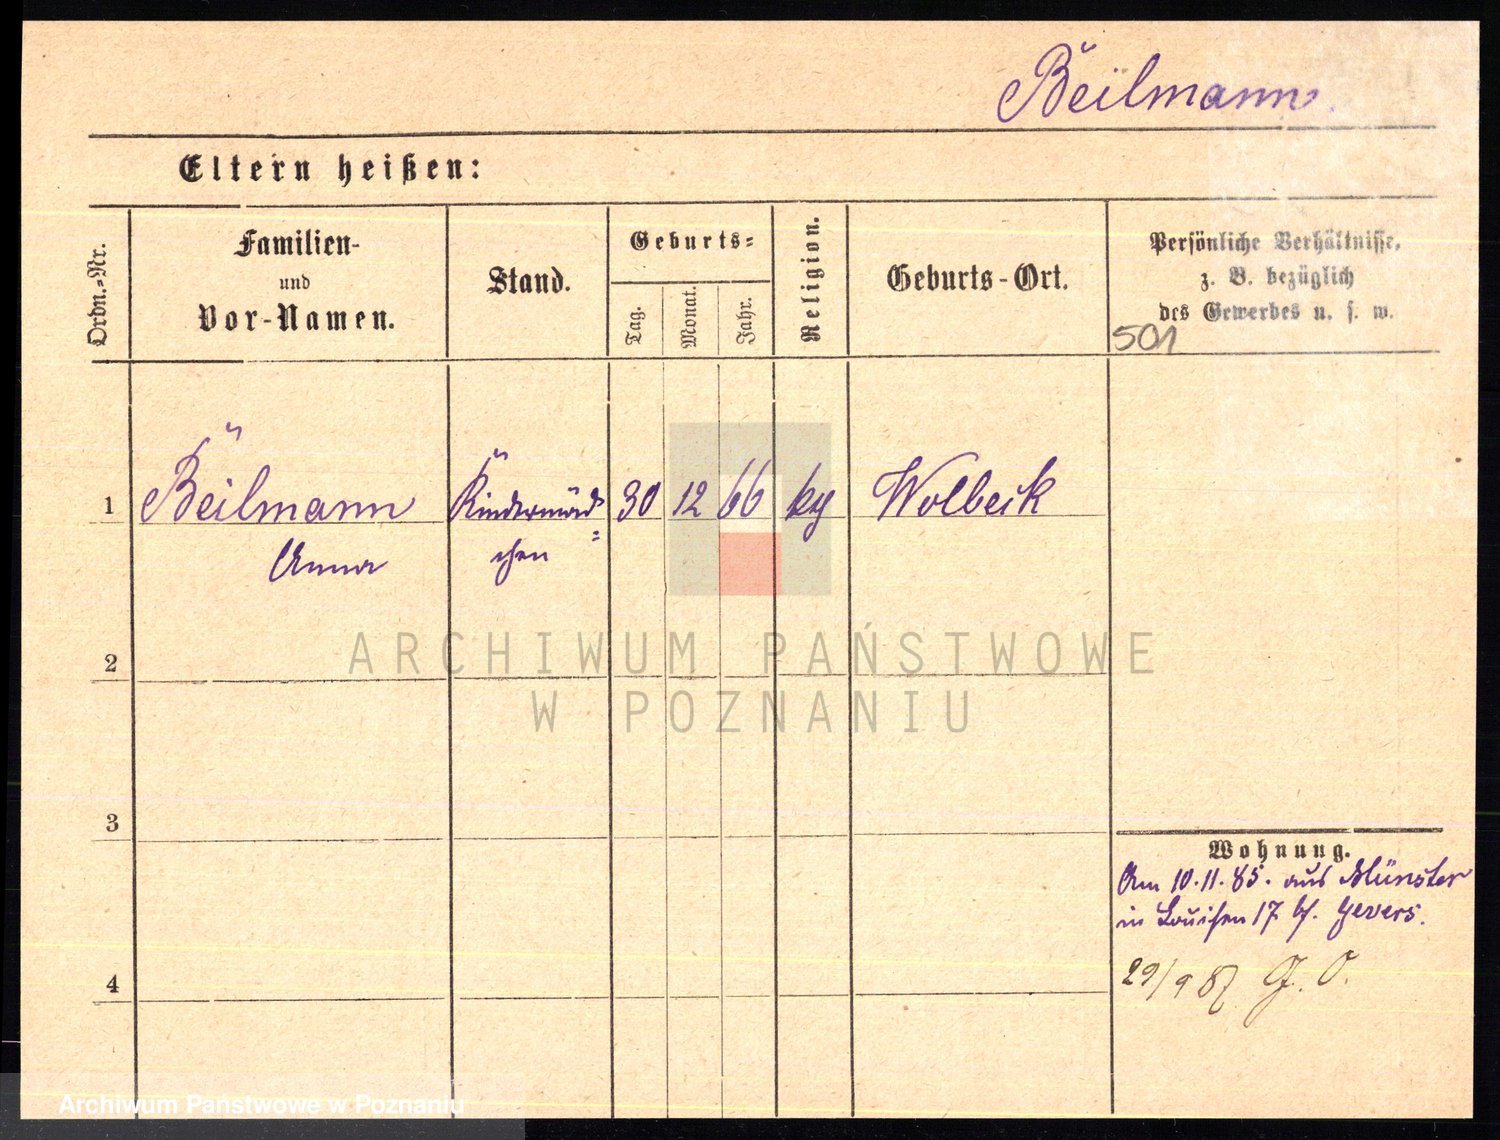 Beilmann.
Eltern heißen:
Ordn.-Nr.
Familien-
und
Vor-Namen.
Stand.
Geburts-
Tag.
Monat.
Jahr.
Religion.
Geburts-Ort.
Persönliche Verhältnisse,
z. B. bezüglich
des Gewerbes u. s. w.
501
1
Beilmann
Anna
Kindermäd=
chen
30
12
66
Wolbeck
2
3
4
Wohnung.
Am 10.11.85. aus Münster
in Louisen 17 b/. Gevers.
29/9 87 G. O.
ARCHIWUM PAŃSTWOWE
W POZNANIU
Archiwum Państwowe w Poznaniu